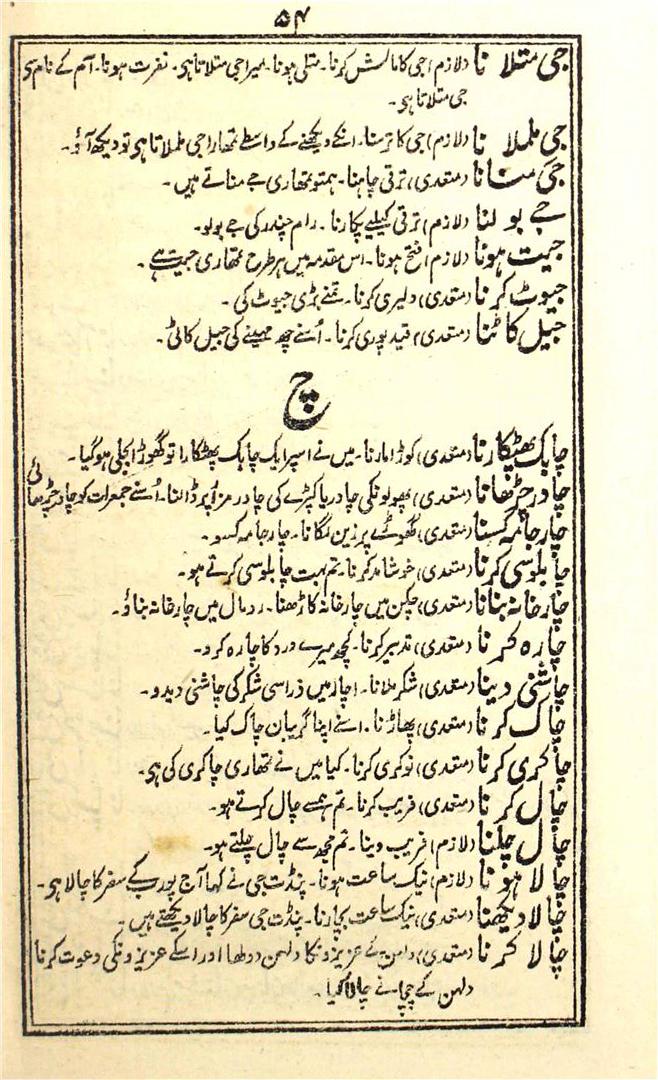 ۵۴
جی متلا نا (لازم) جی کا مالش کرنا۔ متلی ہونا۔ میرا جی متلاتا ہی۔ نفرت ہونا۔ آم کے نام ہی
جی متلاتا ہی۔
جی ململا نا (لازم) جی کا ترسنا۔ انکے دیکھنے کے واسطے تمھارا جی ململاتا ہی تو دیکھ آؤ۔
جی منانا (متعدی) ترقی چاہنا۔ ہمتو تمھاری جے مناتے ہیں۔
جے بولنا (لازم) ترقی کیلیے پکارنا۔ رام چندر کی جے بولو۔
جیت ہونا (لازم) فتح ہونا۔ اس مقدمہ میں ہر طرح تمھاری جیت ہے۔
جیوٹ کرنا (متعدی) دلیری کرنا۔ تمنے بڑی جیوٹ کی۔
جیل کاٹنا (متعدی) قید پوری کرنا۔ اُسنے چھ مہینے کی جیل کاٹی۔
چ
چابک پھٹکارنا (متعدی) کوڑا مارنا۔ میں نے اسپر ایک چابک پھٹکارا تو گھوڑا بجلی ہو گیا۔
چادر چڑھانا (متعدی) پھولونکی چادر یا کپڑے کی چادر مزار پر ڈالنا۔ اُسنے جمعرات کو چادر چڑھائی
چارجامہ کسنا (متعدی) گھوڑے پر زین لگانا۔ چارجامہ کسو۔
چاپلوسی کرنا (متعدی) خوشامد کرنا۔ تم بہت چاپلوسی کرتے ہو۔
چارخانہ بنانا (متعدی) چکن میں چارخانہ کاڑھنا۔ رومال میں چارخانہ بناؤ۔
چارہ کرنا (متعدی) تدبیر کرنا۔ کچھ میرے درد کا چارہ کرو۔
چاشنی دینا (متعدی) شکر ملانا۔ اچار میں ذراسی شکر کی چاشنی دیدو۔
چاک کرنا (متعدی) پھاڑنا۔ اسنے اپنا گریبان چاک کیا۔
چاکری کرنا (متعدی) نوکری کرنا۔ کیا میں نے تمھاری چاکری کی ہی۔
چال کرنا (متعدی) فریب کرنا۔ تم ہمسے چال کرتے ہو۔
چال چلنا (لازم) فریب دینا۔ تم مجھ سے چال چلتے ہو۔
چالا ہونا (لازم) نیک ساعت ہونا۔ پنڈت جی نے کہا آج پورب کے سفر کا چالا ہی۔
چالا دیکھنا (متعدی) نیک ساعت بچارنا۔ پنڈت جی سفر کا چالا دیکھتے ہیں۔
چالا کرنا (متعدی) دلہن کے عزیزونکا دلہن دولھا اور اسکے عزیزونکی دعوت کرنا
دلہن کے چچا نے چالا کیا۔